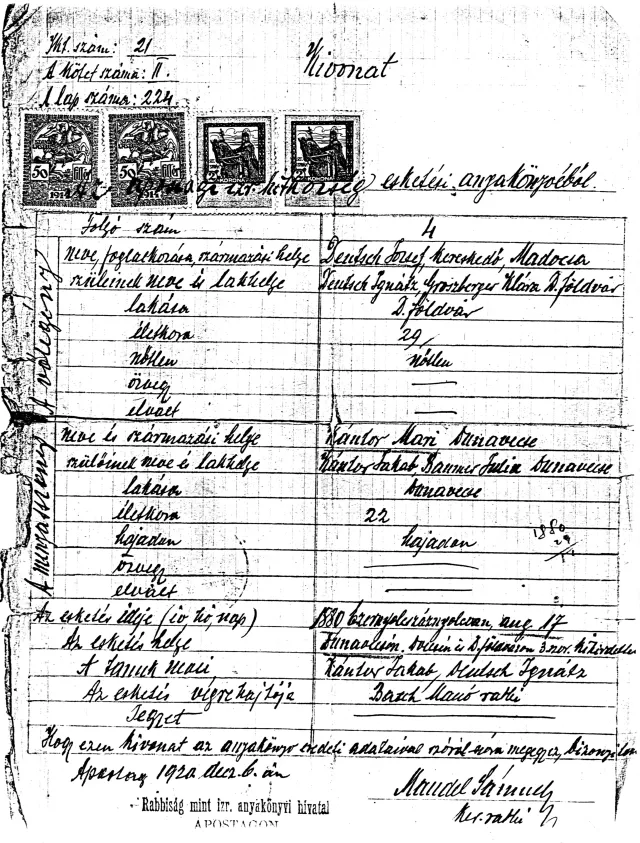 Ikt. szám: 21
A kötet száma: II.
A lap száma: 224.
Kivonat
50 50
fillér fillér
Az apostagi izr. hitközség esketési anyakönyvéből.
Folyó szám 4
A vőlegény
neve, foglalkozása, származási helye Deutsch József, kereskedő, Madocsa
szüleinek neve és lakhelye Deutsch Ignátz Groszberger Klára D. földvár
lakása D. földvár
életkora 29
nőtlen nőtlen
özvegy —
elvált —
A menyasszony
neve és származási helye Kántor Mari Dunavecse
szülőinek neve és lakhelye Kántor Jakab Julia Dunavecse
lakása Dunavecse
életkora 22
hajadon hajadon
1880
29
özvegy —
elvált —
Az esketés ideje (év, hó, nap) 1880 Ezernyolcszáznyolcvan, aug. 17
Az esketés helye Dunavecsén. és D. földváron 3 szor. kihirdettetve
A tanuk nevei Kántor Jakab, Deutsch Ignátz
Az esketés végrehajtója Basch Manó rabbi
Jegyzet —
Hogy ezen kivonat az anyakönyv eredeti adataival szóról szóra megegyez, bizonyítom
Apostag 1920 dec. 6.-án
Mandel Sámuel
ker. rabbi
Rabbiság mint izr. anyakönyvi hivatal
APOSTAGON